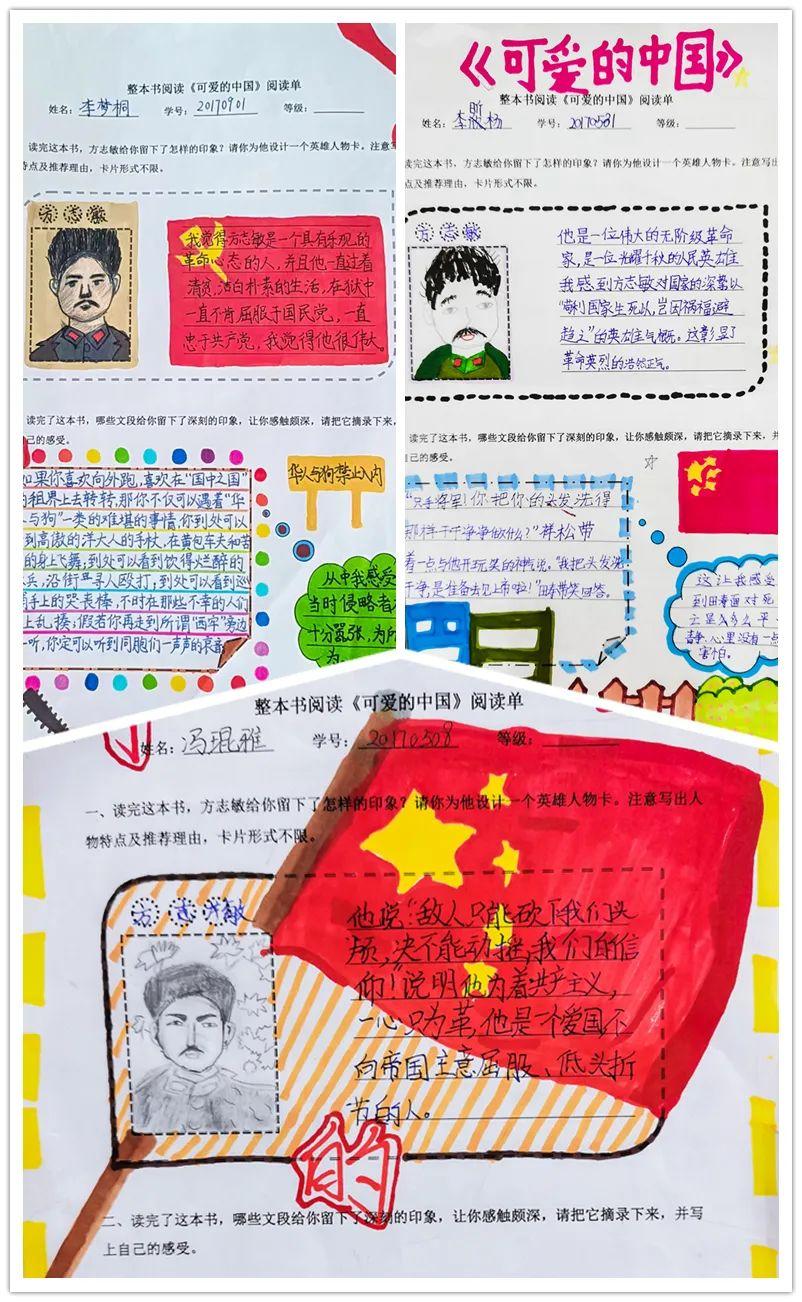 整本书阅读《可爱的中国》阅读单
姓名：李梦桐 学号：20170901 等级：
读完这本书，方志敏给你留下了怎样的印象？请你为他设计一个英雄人物卡。注意写
特点及推荐理由，卡片形式不限。
方志敏
我觉得方志敏是一个具有乐观的
革命心态的人，并且他一直过着
清贫，洁白朴素的生活，在狱中
一直不肯屈服于国民党，一直
忠于共产党，我觉得他很伟大。
读完了这本书，哪些文段给你留下了深刻的印象，让你感触颇深，请把它摘录下来，
己的感受。
如果你喜欢向外跑，喜欢在“国中之国”
租界上去转转，那你不仅可以遇着“华
人与狗”一类的难堪的事情，你到处可以
到高傲的洋大人的手杖，在黄包车夫和苦
的身上飞舞，到处可以看到饮得烂醉的
兵，沿街寻人殴打，到处可以看到巡
手上的哭丧棒，不时在那些不幸的人们
上乱揍，假若你再走到所谓“西牢”旁边
一听，你定可以听到同胞们一声声的哀音
华人与狗禁止入内
从中我感受
当时侵略者
十分嚣张，为所
为
《可爱的中国》
整本书阅读《可爱的中国》阅读单
姓名：李 杨 学号：20170531 等级：
读完这本书，方志敏给你留下了怎样的印象？请你为他设计一个英雄人物卡。注意写出
点及推荐理由，卡片形式不限。
方志敏
他是一位伟大的无阶级革命
家，是一位光耀千秋的人民英雄
我感到方志敏对国家的深挚以
利国家生死以，岂因祸福避
趋之”的英雄主气概。这彰显了
革命英烈的浩然正气。
读完了这本书，哪些文段给你留下了深刻的印象，让你感触颇深，请把它摘录下来，并
己的感受。
你把你的头发洗得
那样干干净净做什么？”祥松带
着一点与他开玩笑的神气说。“我把头发洗
干净是准备去见上帝啦！”田寿带笑回答。
这让我感受
到田寿面对死
平
静，心里没有一点
害怕。
整本书阅读《可爱的中国》阅读单
姓名：冯琨雅 学号：20170508 等级：
一、读完这本书，方志敏给你留下了怎样的印象？请你为他设计一个英雄人物卡。注意写出人
物特点及推荐理由，卡片形式不限。
方志敏
他说：“敌人只能砍下我们头
颅，决不能动摇，我们的信
仰！”说明他为着共产主义，
一心只为革，他是一个爱国不
向帝国主意屈服、低头折
节的人。
的
二、读完了这本书，哪些文段给你留下了深刻的印象，让你感触颇深，请把它摘录下来，并写
上自己的感受。